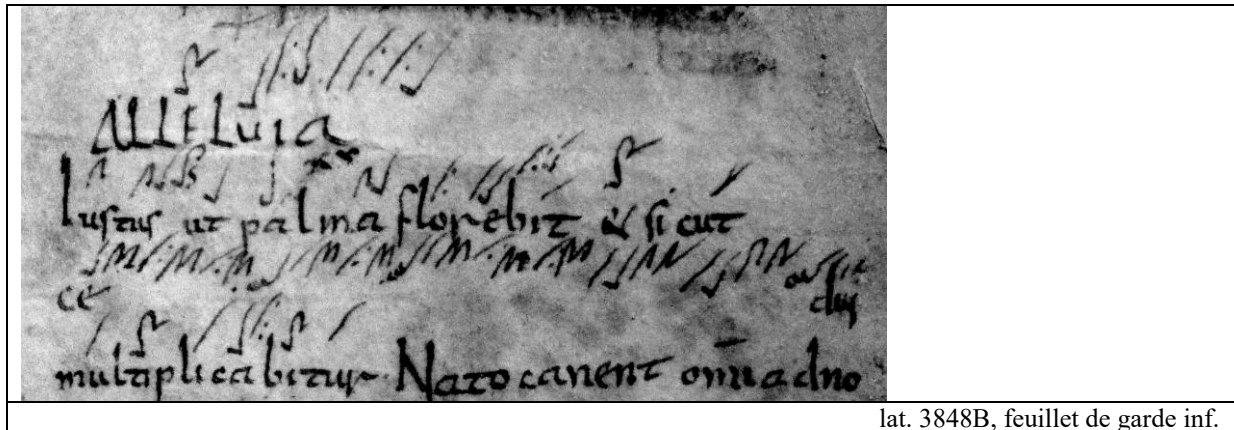 ALLELUIA
Iustus ut palma florebit & sicut
ce drus
multiplicabitur Nato canent omnia dno
lat. 3848B, feuillet de garde inf.